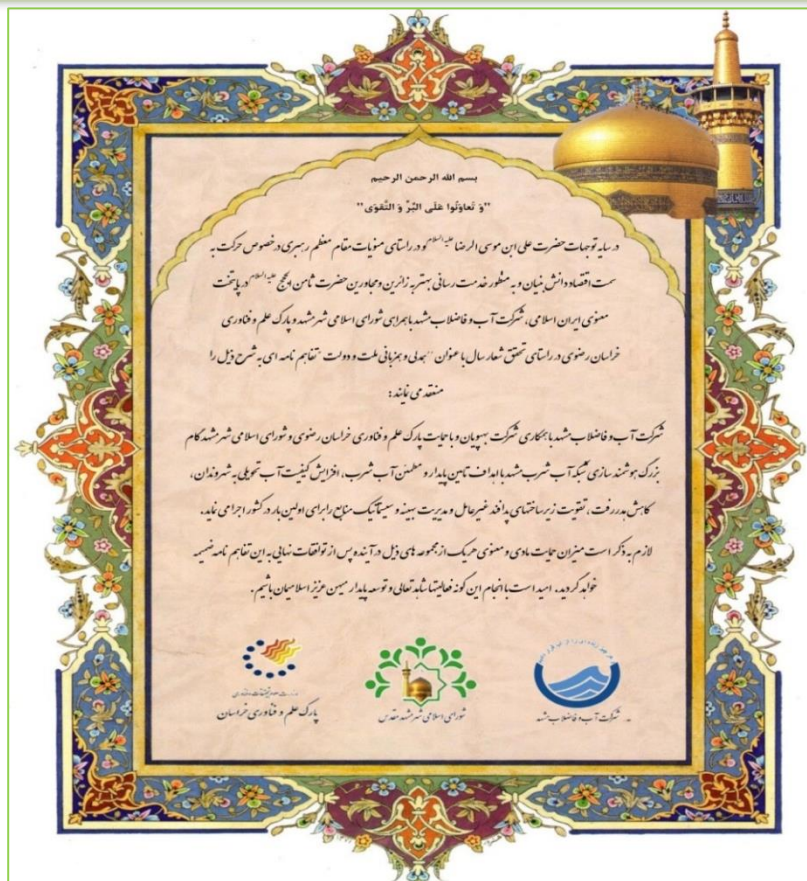 بسم الله الرحمن الرحیم
"وَ تَعاوَنُوا عَلَی البِرِّ وَ التَّقوَی"
در سایه توجهات حضرت علی ابن موسی الرضا علیه السلام و در راستای منویات مقام معظم رهبری در خصوص حرکت به
سمت اقتصاد دانش بنیان و به منظور خدمت رسانی بهتر به زائرین و مجاورین حضرت ثامن الحجج علیه السلام در پایتخت
معنوی ایران اسلامی، شرکت آب و فاضلاب مشهد با همراهی شورای اسلامی شهر مشهد و پارک علم و فناوری
خراسان رضوی در راستای تحقق شعار سال با عنوان "همدلی و همزبانی ملت و دولت" تفاهم نامه ای به شرح ذیل را
منعقد می نمایند:
شرکت آب و فاضلاب مشهد با همکاری شرکت بهپویان و با حمایت پارک علم و فناوری خراسان رضوی و شورای اسلامی شهر مشهد گام
بزرگ هوشمند سازی شبکه آب شرب مشهد با اهداف تامین پایدار و مطمئن آب شرب، افزایش کیفیت آب تحویلی به شهروندان،
کاهش هدررفت، تقویت زیرساختهای پدافند غیرعامل و مدیریت بهینه و سیستماتیک منابع را برای اولین بار در کشور اجرا می نماید.
لازم به ذکر است میزان حمایت مادی و معنوی هر یک از مجموعه های ذیل در آینده و پس از توافقات نهایی به این تفاهم نامه ضمیمه
خواهد گردید. امید است با انجام این گونه فعالیتها شاهد تعالی و توسعه پایدار میهن عزیز اسلامیمان باشیم.
پارک علم و فناوری خراسان
شورای اسلامی شهر مشهد مقدس
شرکت آب و فاضلاب مشهد